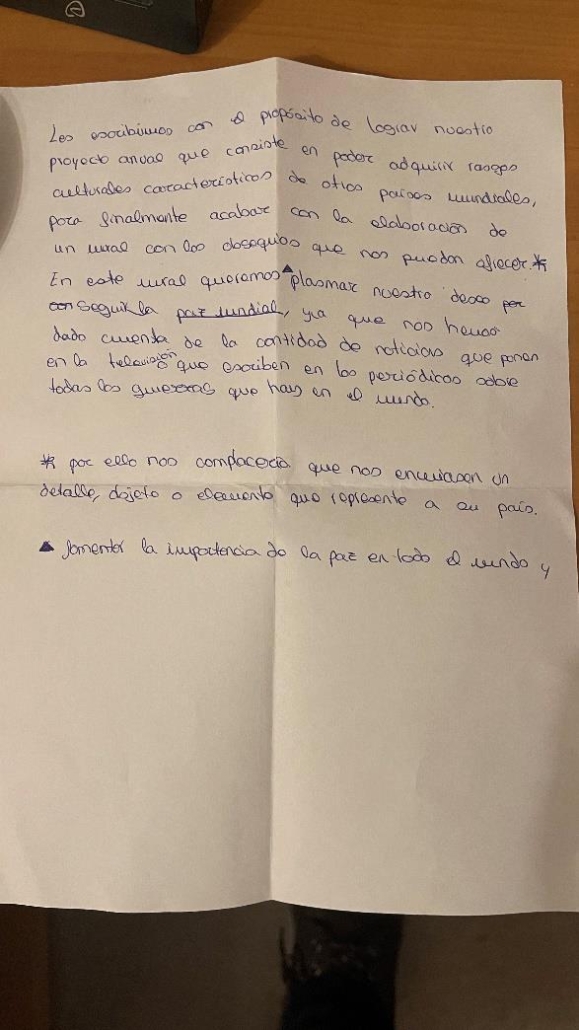 Les escribimos con el propósito de lograr nuestro
proyecto anual que consiste en poder adquirir rasgos
culturales característicos de otros países mundiales,
para finalmente acabar con la elaboración de
un mural con los obsequios que nos puedan ofrecer.*
En este mural queremos▲plasmar nuestro deseo por
conseguir la paz mundial, ya que nos hemos
dado cuenta de la cantidad de noticias que ponen
en la televisión que escriben en los periódicos sobre
todas las guerras que hay en el mundo.
* por ello nos complacería que nos enviasen un
detalle, objeto o elemento que represente a su país.
▲ fomentar la importancia de la paz en todo el mundo y